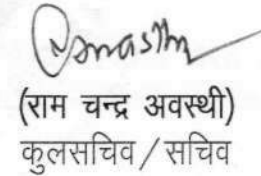 (राम चन्द्र अवस्थी)
कुलसचिव/सचिव